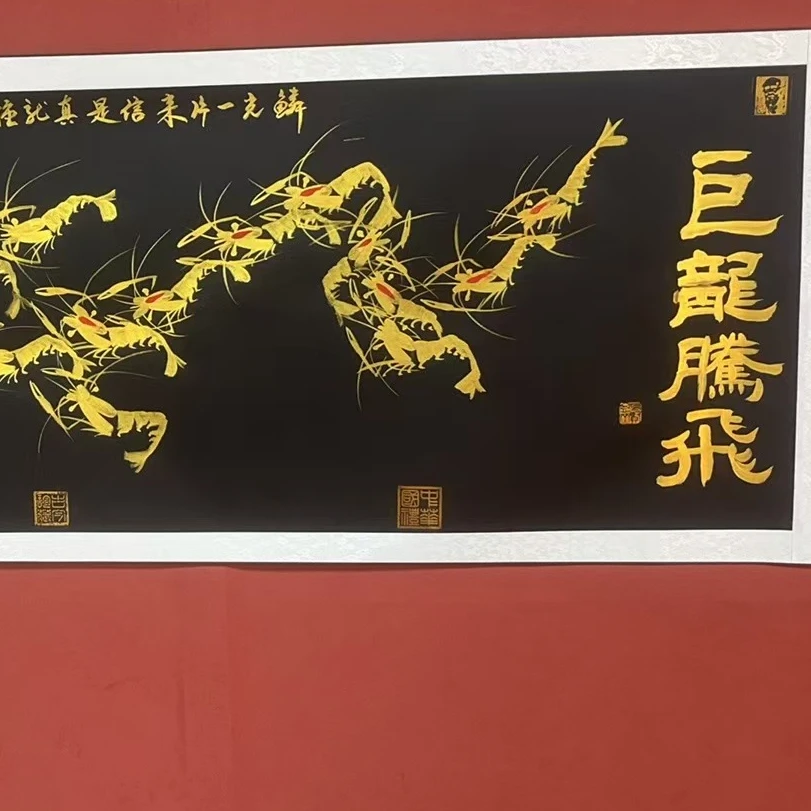 巨龍騰飛
鱗光一片来信是真龙種
中華國禮